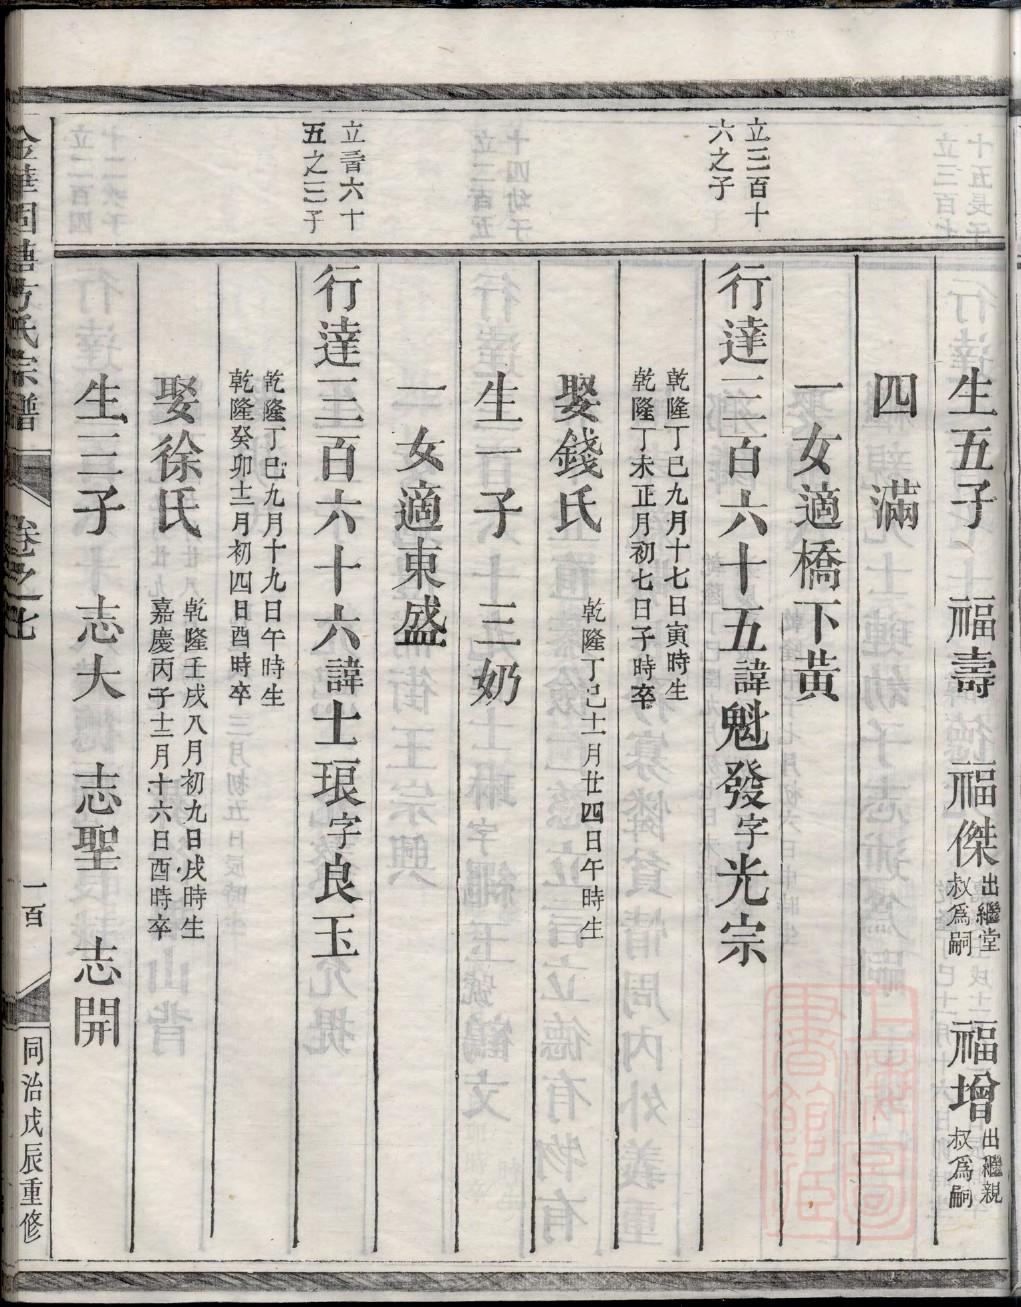 生五子　福壽　福傑出繼堂叔爲嗣　福增出繼親叔爲嗣
四滿
一女適橋下黃
立三百十六之子
行達三百六十五諱魁發字光宗
乾隆丁巳九月十七日寅時生
乾隆丁未正月初七日子時卒
娶錢氏　乾隆丁巳十一月廿四日午時生
生一子　三奶
一女適東盛
立三百六十五之三子
行達三百六十六諱士琅字良玉
乾隆丁巳九月十九日午時生
乾隆癸卯十二月初四日酉時卒
娶徐氏　乾隆壬戌八月初九日戌時生
嘉慶丙子十二月十六日酉時卒
生三子　志大　志聖　志開
金華固塘方氏宗譜
卷之七
一百
同治戊辰重修